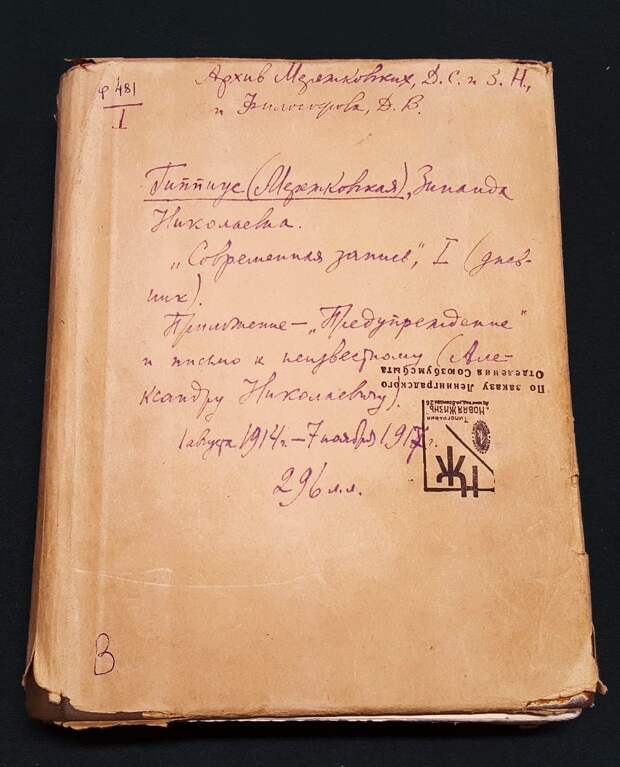 ф 481
I
Архив Мережковских, Д.С. и З.Н.,
и Философова, Д.В.
Гиппиус (Мережковская), Зинаида
Николаевна.
„Современная запись", I (днев-
ник).
Приложение – „Предупреждение"
и письмо к неизвестному (Але-
ксандру Николаевичу).
1 августа 1914 г. – 7 ноября 1917 г.
296 л.л.
По заказу Ленинградского
Отделения Союзбумсбыта
Типография
„НОВАЯ ЖИЗНЬ"
НЖ
В